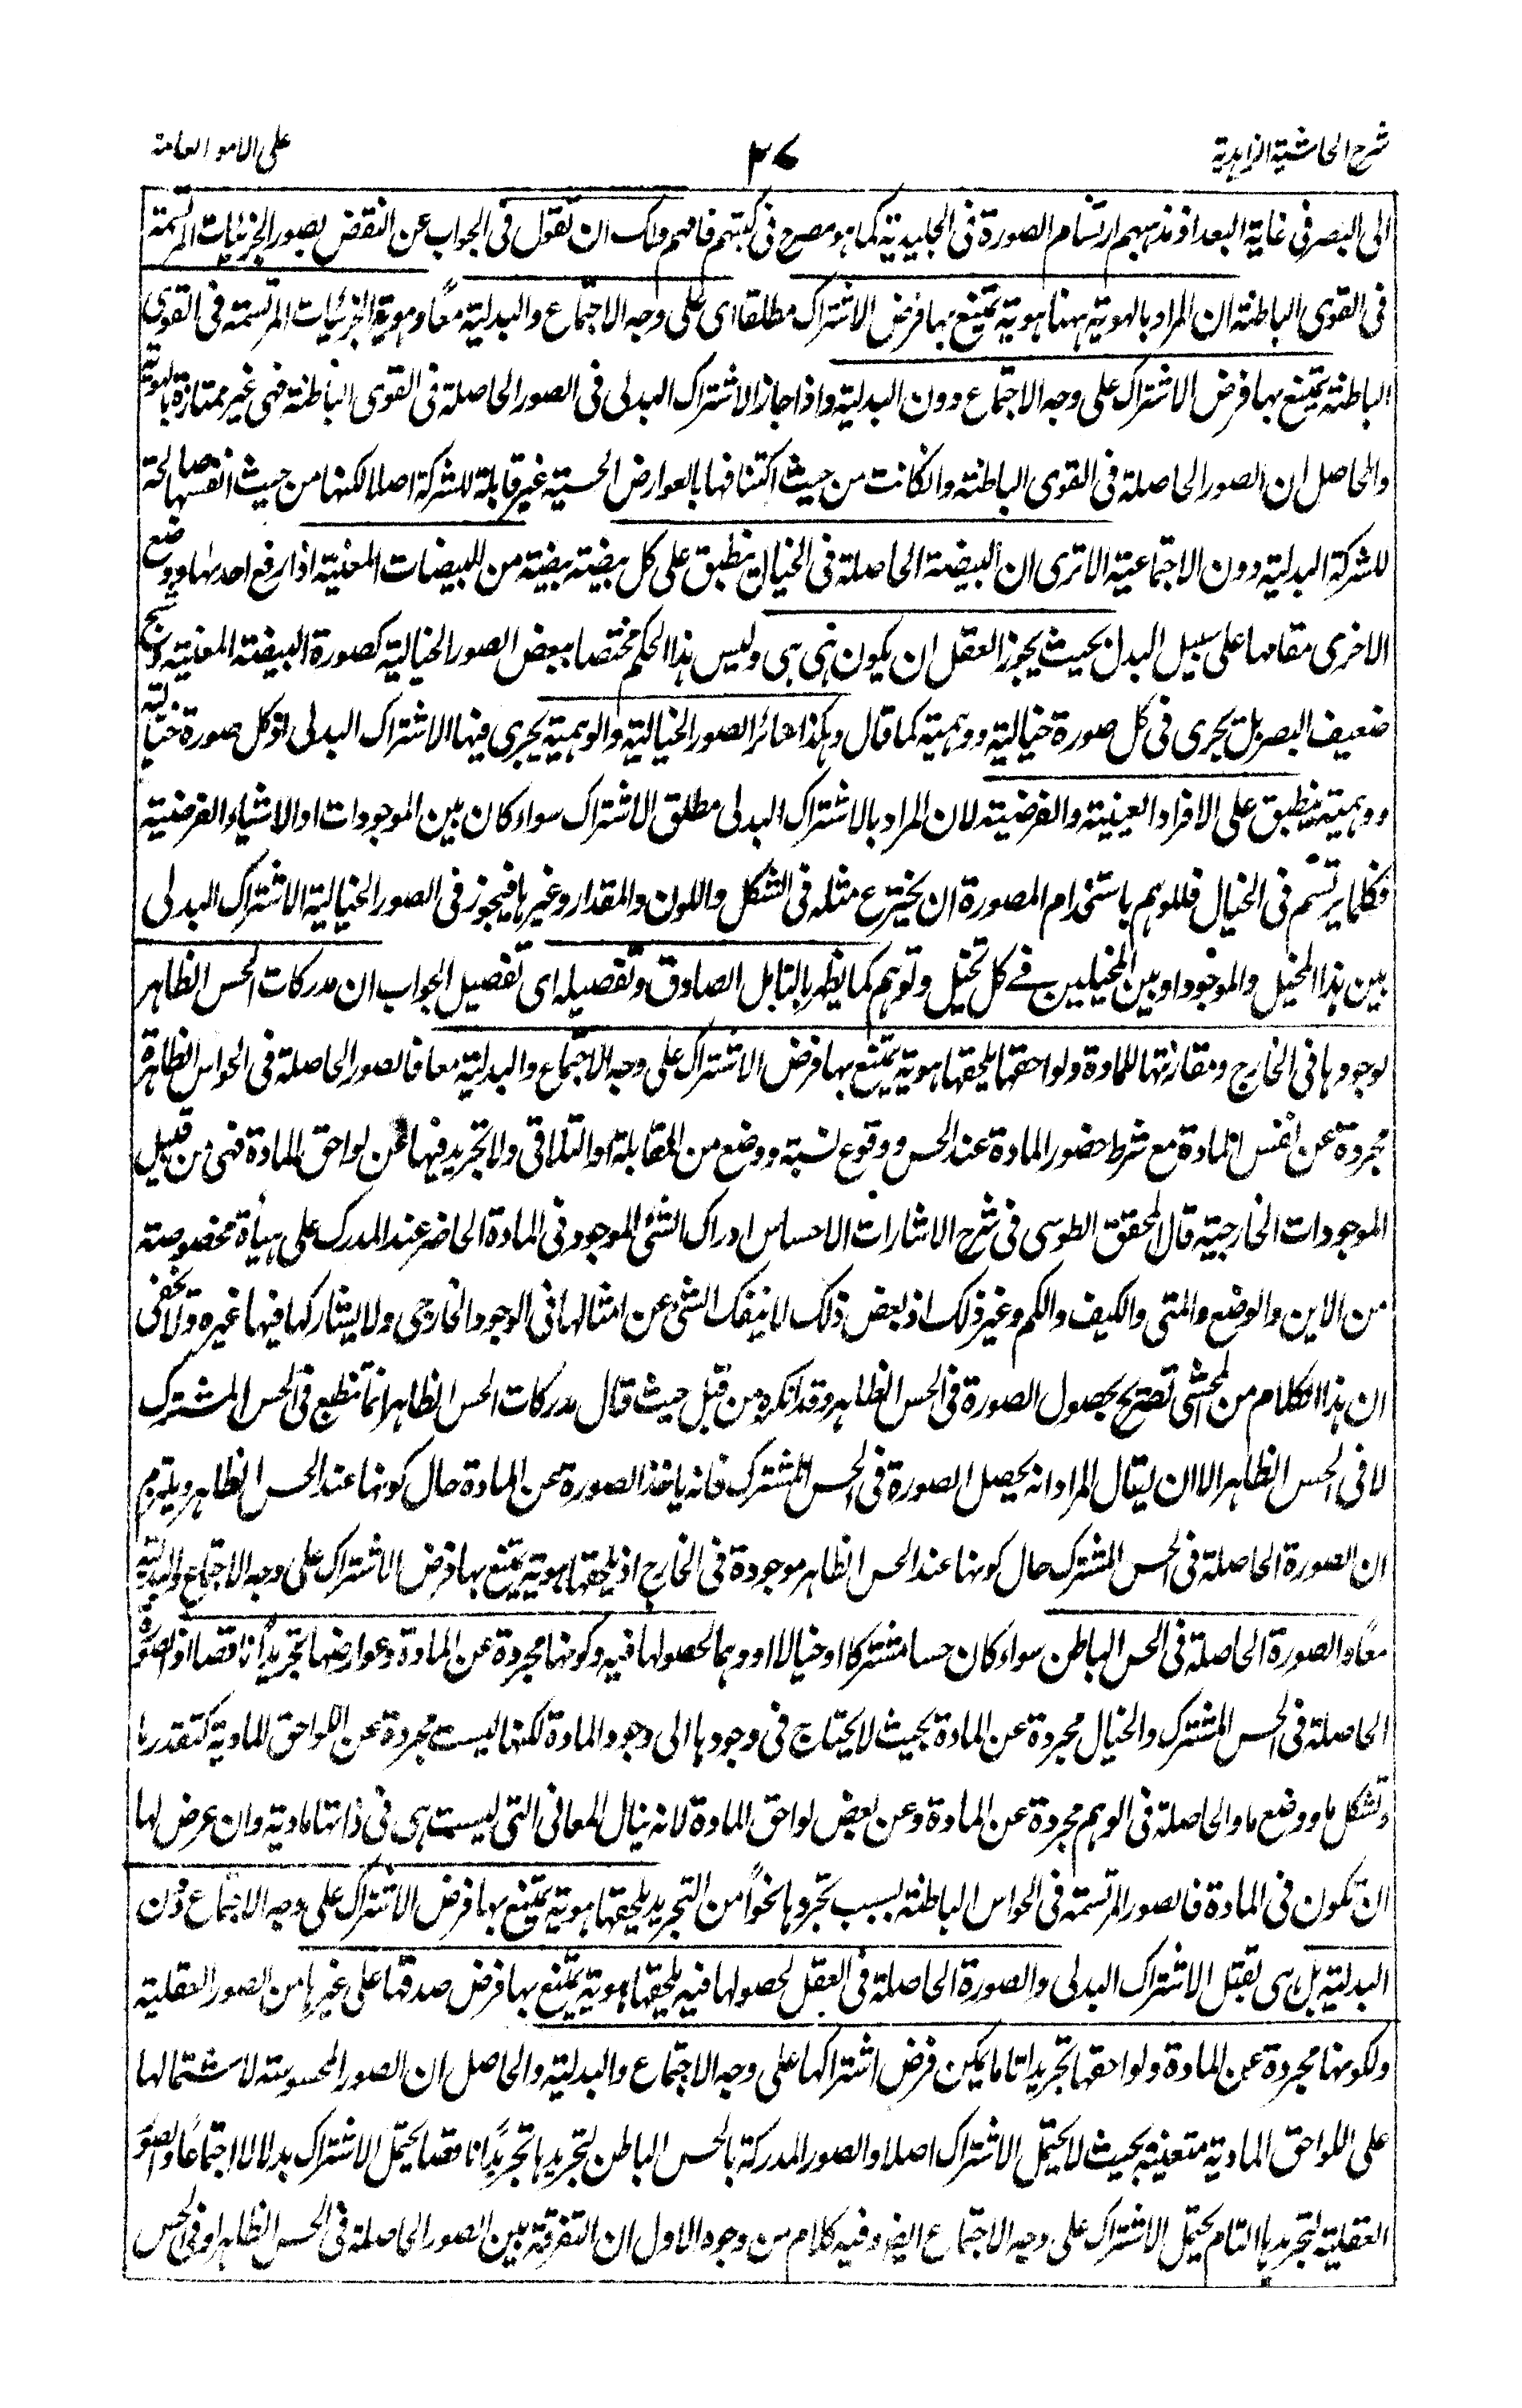 شرح الحاشية الزاهدية
٣٧
على الامور العامة
الى البصر فى غاية البعد اذ مذهبهم ارتسام الصورة فى الجليدية كما هو مصرح فى كتبهم فافهم ولك ان تقول فى الجواب عن النقض بصور الجزئيات المرتسمة
فى القوى الباطنة ان المراد بالهوية ههنا هوية يمتنع بها فرض الاشتراك مطلقا اى على وجه الاجتماع والبدلية معًا وهوية الجزئيات المرتسمة فى القوى
الباطنة يمتنع بها فرض الاشتراك على وجه الاجتماع دون البدلية واذا جاز الاشتراك البدلى فى الصور الحاصلة فى القوى الباطنة فهى غير ممتازة بالهوية
والحاصل ان الصور الحاصلة فى القوى الباطنة وانكانت من حيث اكتنافها بالعوارض الحسية غير قابلة للشركة اصلا لكنها من حيث انفسها صالحة
للشركة البدلية دون الاجتماعية الا ترى ان البيضة الحاصلة فى الخيال ينطبق على كل بيضة بيضة من البيضات المعنية اذا رفع احدىها ووضع
الاخرى مقامها على سبيل البدل بحيث يجوز العقل ان يكون هى هى وليس هذا الحكم مختصا ببعض الصور الخيالية كصورة البيضة المعنية وشبح
ضعيف البصر بل يجرى فى كل صورة خيالية ووهمية كما قال وهكذا سائر الصور الخيالية والوهمية يجرى فيها الاشتراك البدلى اذ كل صورة خيالية
ووهمية ينطبق على الافراد العينية والفرضية لان المراد بالاشتراك البدلى مطلق الاشتراك سواء كان بين الموجودات او الاشياء الفرضية
فكلما يرتسم فى الخيال فللوهم باستخدام المصورة ان يخترع مثله فى الشكل واللون والمقدار وغيرها فيجوز فى الصور الخيالية الاشتراك البدلى
بين هذا المخيل والموجود او بين المخيلين فے كل تخيل وتوهم كما يظهر بالتامل الصادق وتفصيله اى تفصيل الجواب ان مدركات الحس الظاهر
لوجودها فى الخارج ومقارنتها للمادة ولواحقها يلحقها هوية يمتنع بها فرض الاشتراك على وجه الاجتماع والبدلية معا فالصور الحاصلة فى الحواس الظاهرة
مجردة عن نفس المادة مع شرط حضور المادة عند الحس ووقوع نسبة ووضع من المقابلة او التلاقى ولا تجريد فيها عن لواحق المادة فهى من قبيل
الموجودات الخارجية قال المحقق الطوسى فى شرح الاشارات الاحساس ادراك الشئ الموجود فى المادة الحاضر عند المدرك على هيأة مخصوصة
من الاين والوضع والمتى والكيف والكم وغير ذلك اذ بعض ذلك لا ينفك الشئ عن امثالها فى الوجود الخارجى ولا يشاركها فيها غيره ولا يخفى
ان هذا الكلام من المحشى تصريح بحصول الصورة فى الحس الظاهر وقد انكره من قبل حيث قال مدركات الحس الظاهر انما تنطبع فى الحس المشترك
لا فى الحس الظاهر الا ان يقال المراد انه يحصل الصورة فى الحس المشترك فانه ياخذ الصورة عن المادة حال كونها عند الحس الظاهر ويلتزم
ان الصورة الحاصلة فى الحس المشترك حال كونها عند الحس الظاهر موجودة فى الخارج اذ يلحقها هوية يمتنع بها فرض الاشتراك على وجه الاجتماع والبدلية
معًا والصورة الحاصلة فى الحس الباطن سواء كان حسا مشتركا او خيالا او وهما لحصولها فيه وكونها مجردة عن المادة وعوارضها تجريدًا ناقصا اذ الصورة
الحاصلة فى الحس المشترك والخيال مجردة عن المادة بحيث لا يحتاج فى وجودها الى وجود المادة لكنها ليست مجردة عن اللواحق المادية كتقدرها
وتشكل ما ووضع ما والحاصلة فى الوهم مجردة عن المادة وعن بعض لواحق المادة لانه ينال المعانى التى ليست هى فى ذاتها مادية وان عرض لها
ان تكون فى المادة فالصور المرتسمة فى الحواس الباطنة بسبب تجردها نحوًا من التجريد يلحقها هوية يمتنع بها فرض الاشتراك على وجه الاجتماع دون
البدلية بل هى يقبل الاشتراك البدلى والصورة الحاصلة فى العقل لحصولها فيه يلحقها هوية يمتنع بها فرض صدقها على غيرها من الصور العقلية
ولكونها مجردة عن المادة ولواحقها تجريدا تاما يمكن فرض اشتراكها على وجه الاجتماع والبدلية والحاصل ان الصور المحسوسة لاشتمالها
على اللواحق المادية متعينة بحيث لا يحتمل الاشتراك اصلا والصور المدركة بالحس الباطن لتجريدها تجريدًا ناقصا يحتمل الاشتراك بدلا لا اجتماعًا والصور
العقلية لتجريدها التام يحتمل الاشتراك على وجه الاجتماع ايضا وفيه كلام من وجوه الاول ان التفرقة بين الصور الحاصلة فى الحس الظاهر او فى الحس